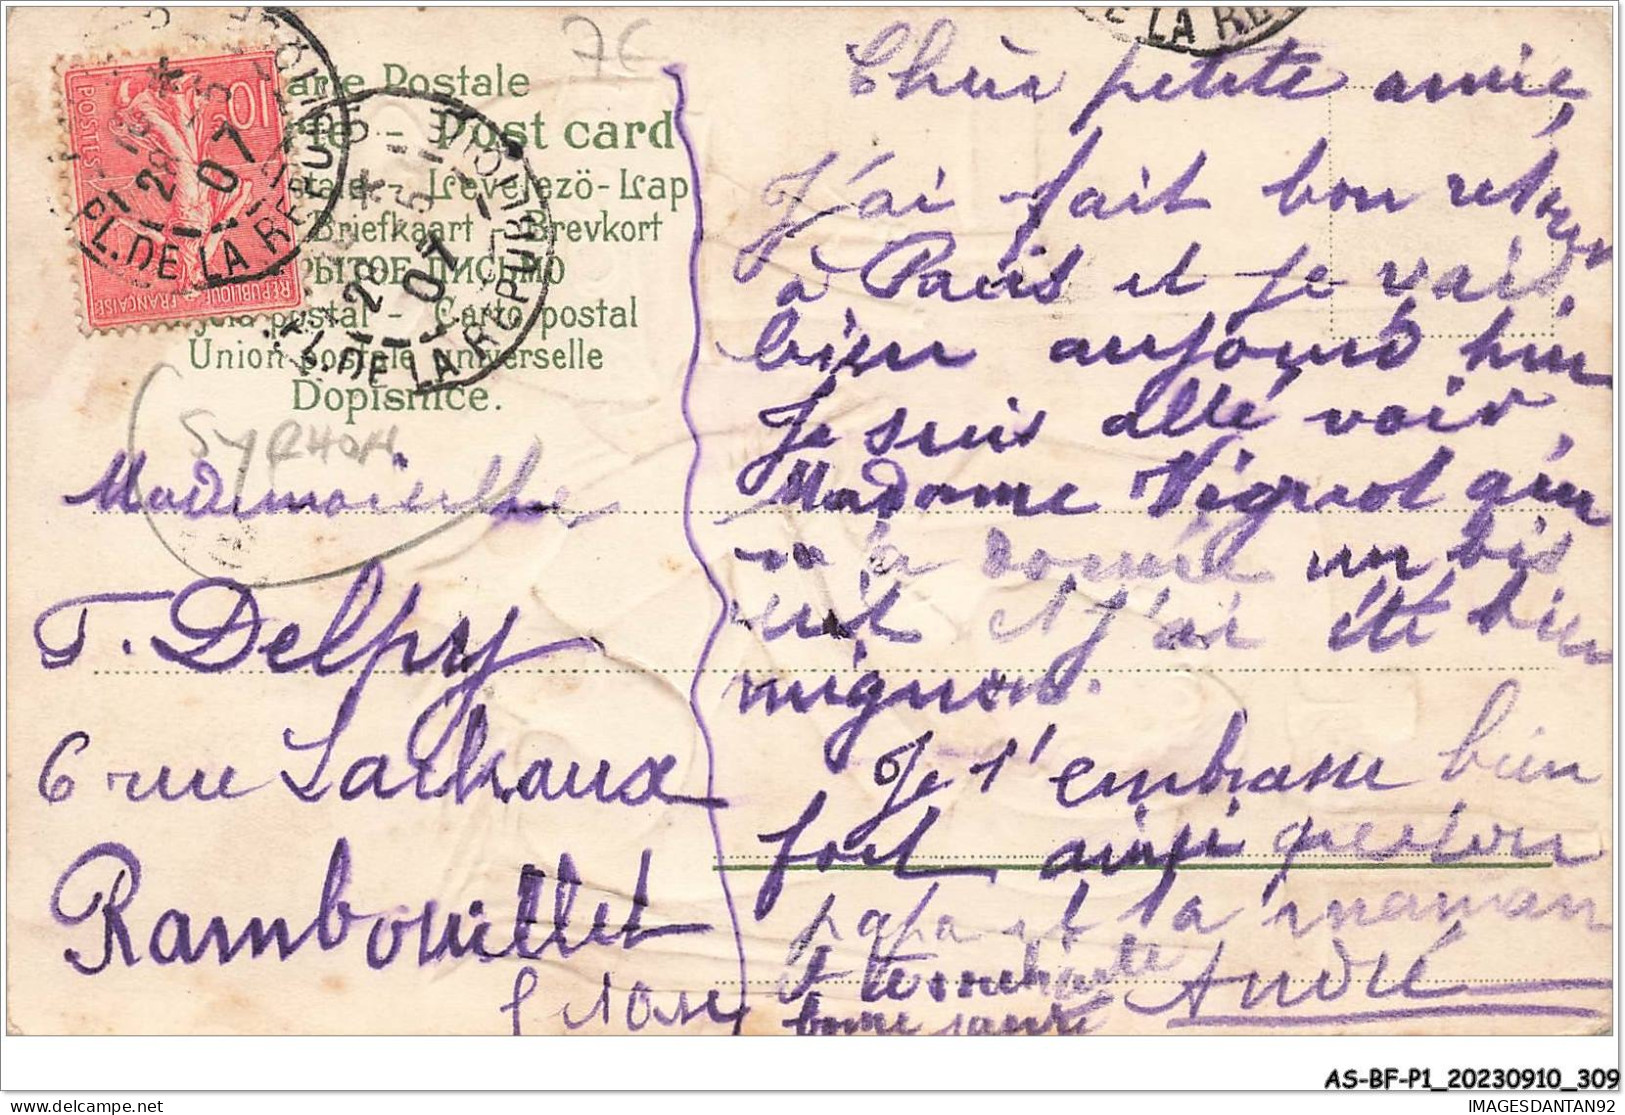 7€
Carte Postale
– Post card
– Levelezö-Lap
Briefkaart – Brevkort
ПИСЬМО
postal – Carto postal
Union postale universelle
Dopisnice.
POSTES
10
REPUBLIQUE FRANÇAISE
PL. DE LA REPUBLIQUE
28
5
07
PL. DE LA REPUBLIQUE
28
5
07
DE LA RE
SYPHON
Mademoiselle
T. Delpy
6 rue Lachaux
Rambouillet
Chère petite amie,
J'ai fait bon retour
à Paris et je vais
bien aujourd hui
Je suis allé voir
Madame Vignot qui
m'a donné un bis
cuit et j'ai été bien
mignon.
Je t'embrasse bien
fort ainsi que ton
papa et ta maman
et te souhaite
bonne santé
André
AS-BF-P1_20230910_309
delcampe.net
IMAGESDANTAN92